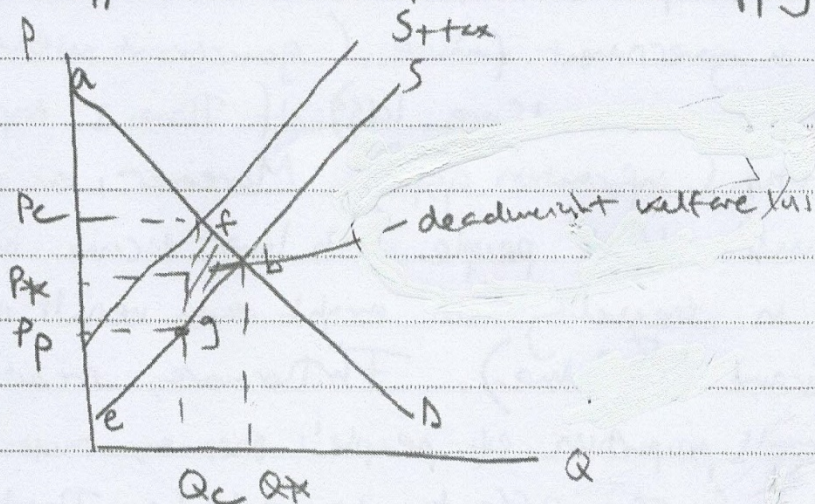 P
S+tax
S
a
Pc
f
deadweight welfare
P*
b
Pp
g
e
D
Qc Q*
Q